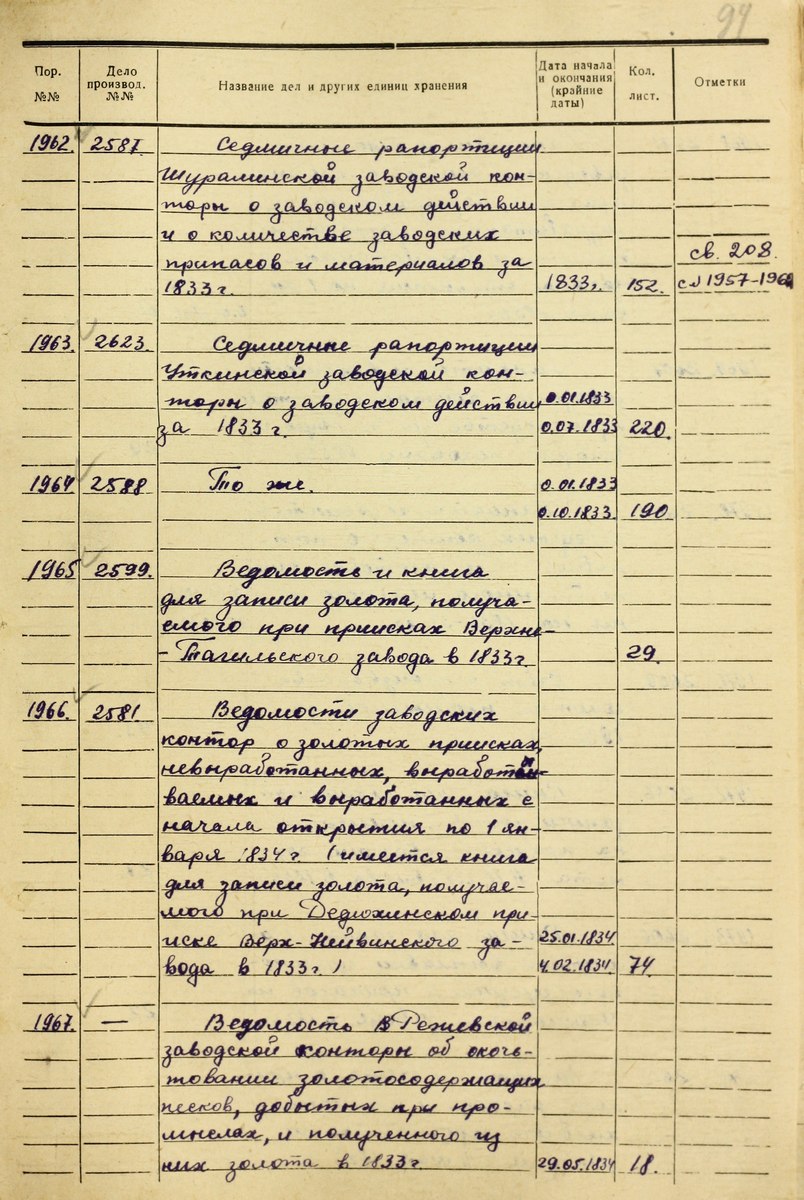 94
Пор. №№
Дело производ. №№
Название дел и других единиц хранения
Дата начала и окончания (крайние даты)
Кол. лист.
Отметки
1962. 2587. Седмичные рапортиции
Шуралинской заводской кон-
торы о заводском действии
и о количестве заводских
припасов и материалов за
св. 208.
1833 г. 1833 г. 152. с 1957-196
1963. 2623. Седмичные рапортиции
Уткинской заводской кон-
торы о заводском действии 0.01.1833
за 1833 г. 0.07.1833 220.
1964 2588 То же. 0.01.1833
0.10.1833. 190
1965 2599. Ведомость и книга
для записи золота, получа-
емого при приисках Верхне-
-Тагильского завода в 1833 г. 29.
1966. 2581. Ведомости заводских
контор о золотых приисках,
невыработанных, выработы-
ваемых и выработанных с
начала открытия по 1 ян-
варя 1834 г. (имеется книга
для записи золота, получае-
мого при Дедюхинском при-
иске Верх-Нейвинского за- 25.01.1834
вода в 1833 г.) 4.02.1834. 74
1967. — Ведомость Режевской
заводской конторы об
золотосодержащих
песков, добытых при про-
мыслах, и полученного из
них золота в 1833 г. 29.05.1834 18.